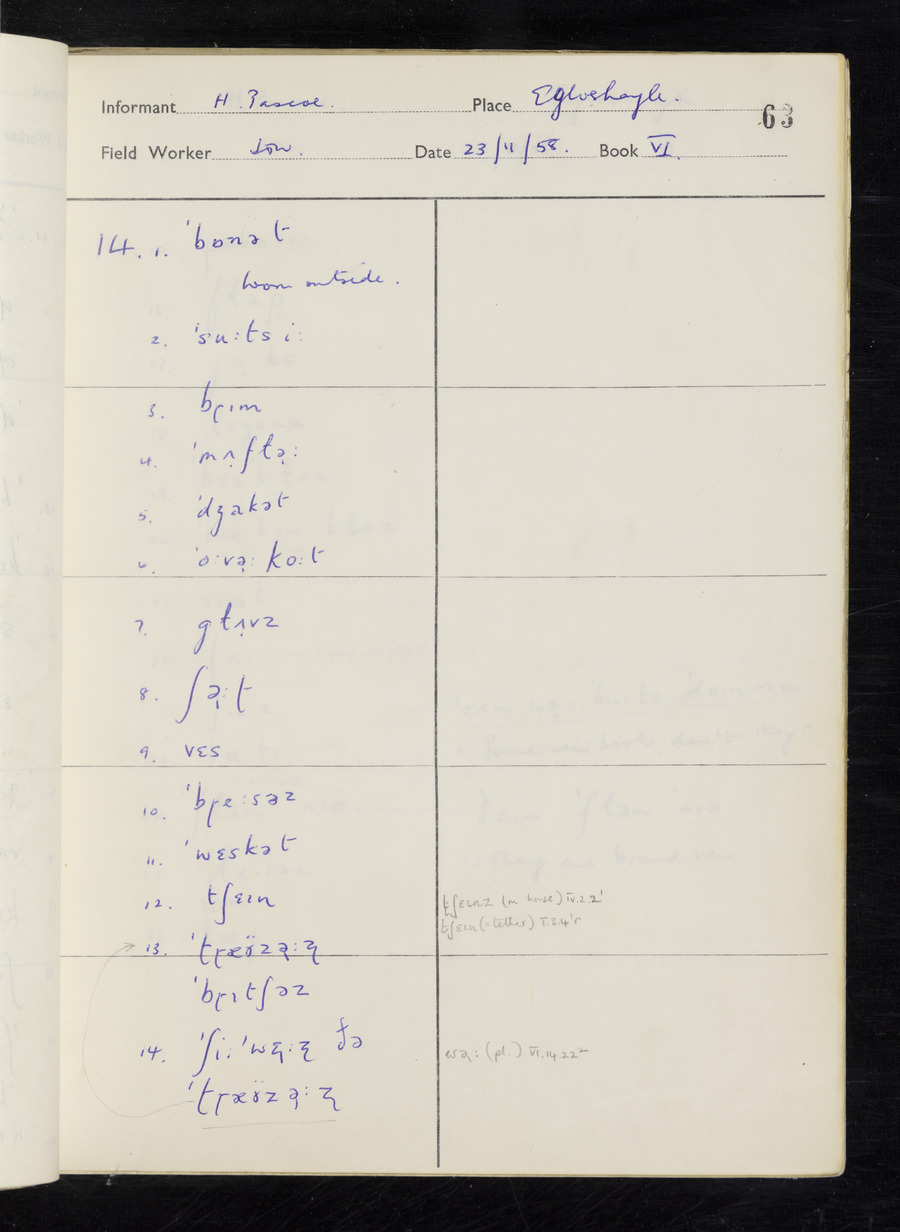 Informant H. Pascoe. Place Egloshayle. 63
Field Worker Date 23/11/58. Book VI.
14. 1. ˈbɒnət
worn outside.
2. ˈsuːtsiː
3. bɽɪm
4. ˈmʌ̣ftə̣ː
5. ˈdʒakət
6. ˈoːvə̣ː koːt
7. glʌ̣vz
8. ʃə̣ːʈ
9. vɛs
10. ˈbɽeːsəz
11. ˈwɛskət
12. tʃɛɪn
tʃɛɪnz (on horse) IV.2.2'
tʃɛɪn (=tether) I.3.4'r
13. ˈtɽæʏ̈zə̣ːʐ
ˈbɽɪtʃəz
14. ˈʃiː ˈwɛ̣ːʐ ðə
wə̣ː (pl.) VI.14.22²
ˈtɽæʏ̈zə̣ːʐ